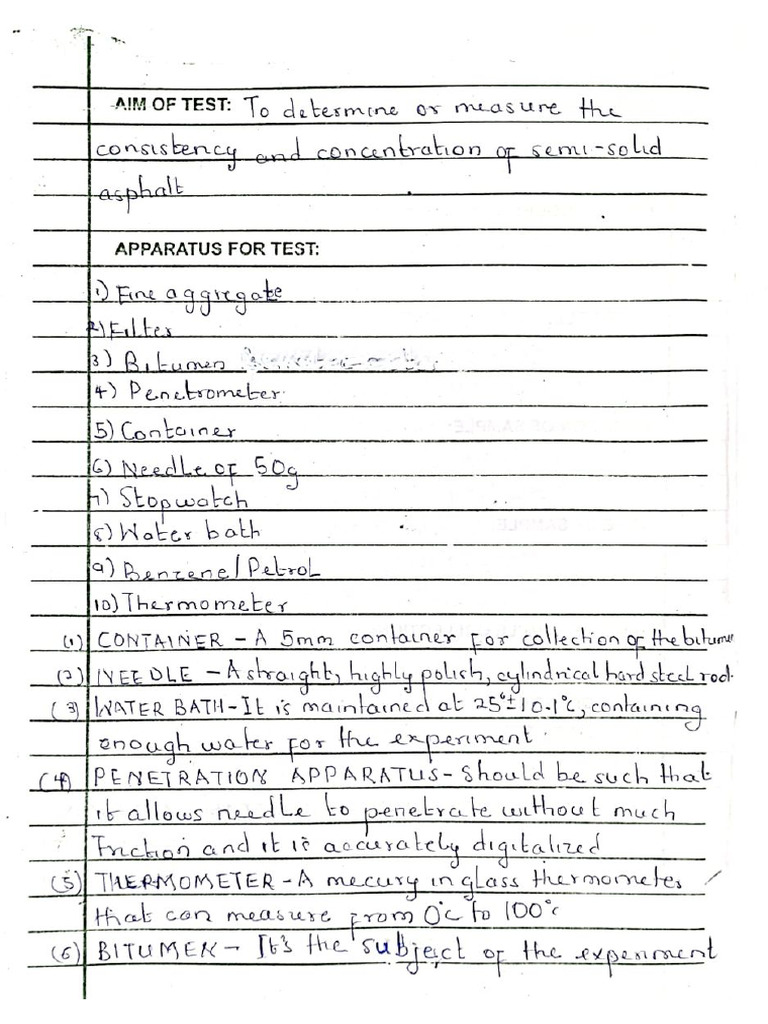 AIM OF TEST: To determine or measure the
consistency and concentration of semi-solid
asphalt
APPARATUS FOR TEST:
1) Fine aggregate
2) Filter
3) Bitumen
4) Penetrometer
5) Container
6) Needle of 50g
7) Stopwatch
8) Water bath
9) Benzene/Petrol
10) Thermometer
(1) CONTAINER - A 5mm container for collection of the bitumen
(2) NEEDLE - A straight, highly polish, cylindrical hard steel rod.
(3) WATER BATH - It is maintained at 25°±10.1°c, containing
enough water for the experiment.
(4) PENETRATION APPARATUS - Should be such that
it allows needle to penetrate without much
friction and it is accurately digitalized
(5) THERMOMETER - A mecury in glass thermometer
that can measure from 0°c to 100°c
(6) BITUMEN - It's the subject of the experiment